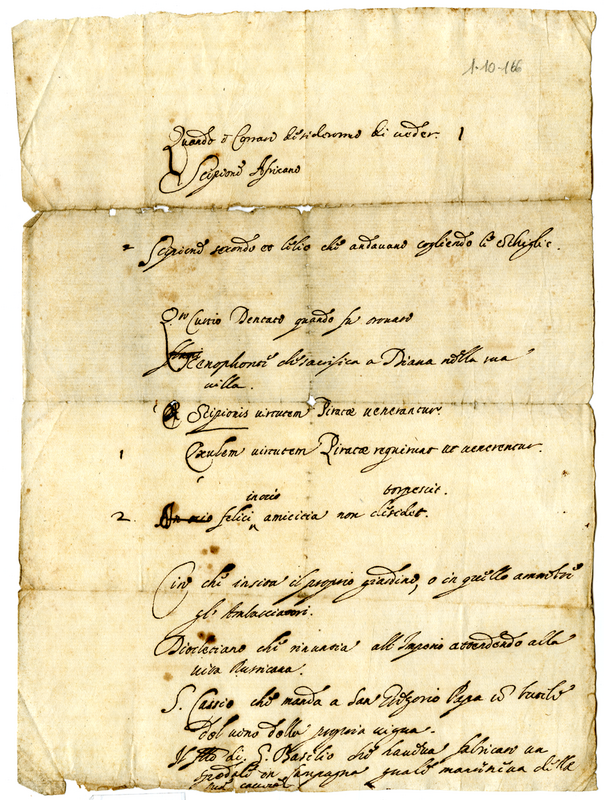 1-10-166
Quando i Corsari desiderorno di veder. 1
Scipione Africano
2 Scipione secondo et lelio che andavano cogliendo le Chioglie.
Q.to Curio Dentato quando fu ornato
Xenophonte che sacrifica a Diana nella sua
villa.
Scipionis virtutem Piratæ venerantur.
1 Exulem virtutem Piratæ requirunt ut venerentur.
in ocio torpescit.
2. felici amicicia non desidet.
Ciro che insira il proprio giardino, o in quello ammette
gl' Ambasciatori.
Diocletiano che rinuncia all' Imperio attendendo alla
vita Rusticana.
S. Cassio che manda a San Gregorio Papa
del vino della propria vigna.
Il di S. Basilio che haveva fabricato un
in Campagna quale manteneva